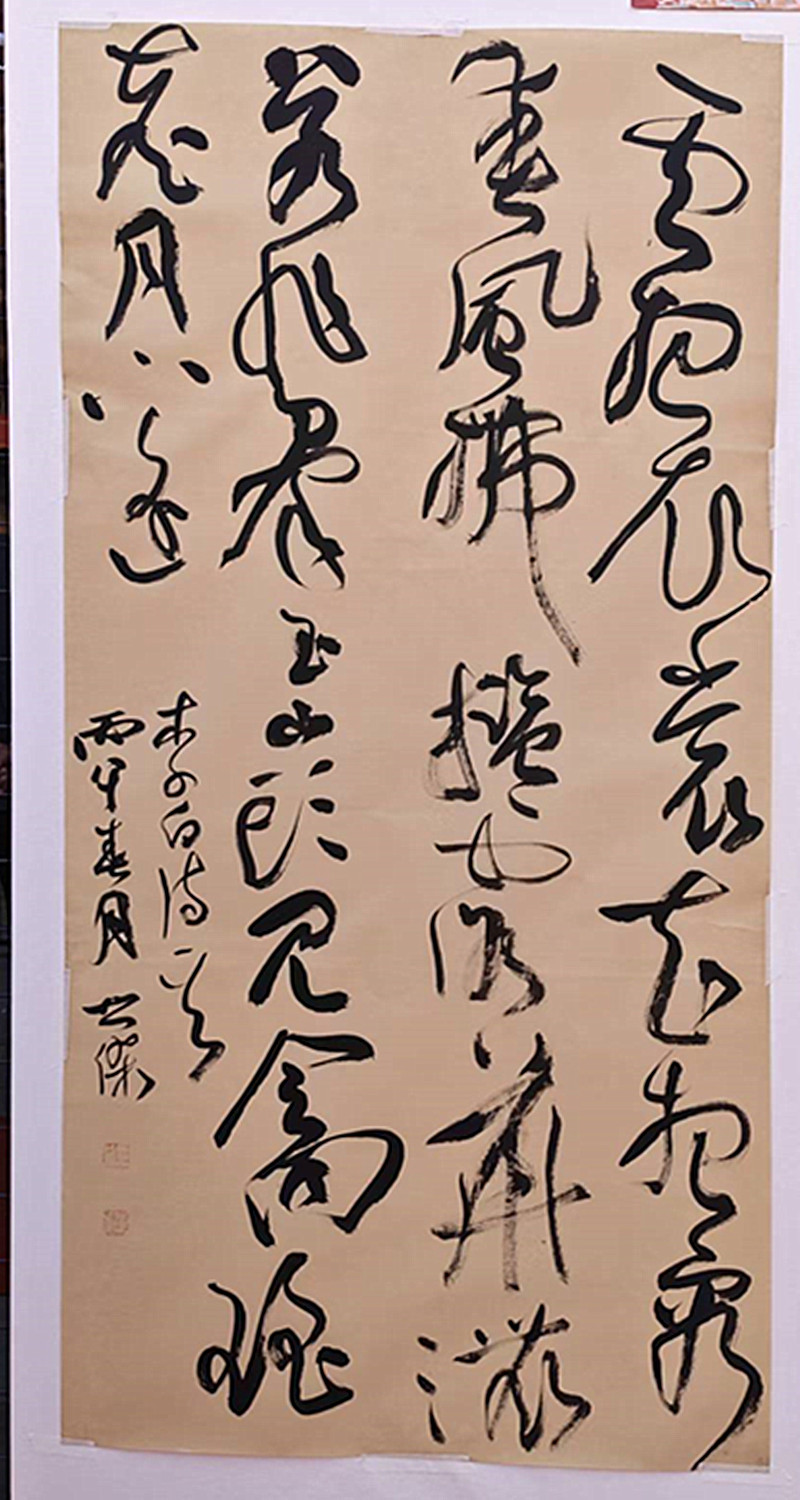 雲想衣裳花想容
春風拂檻露華濃
若非群玉山頭見會向瑤
臺月下逢
李白詩一首
丙午春月 世傑